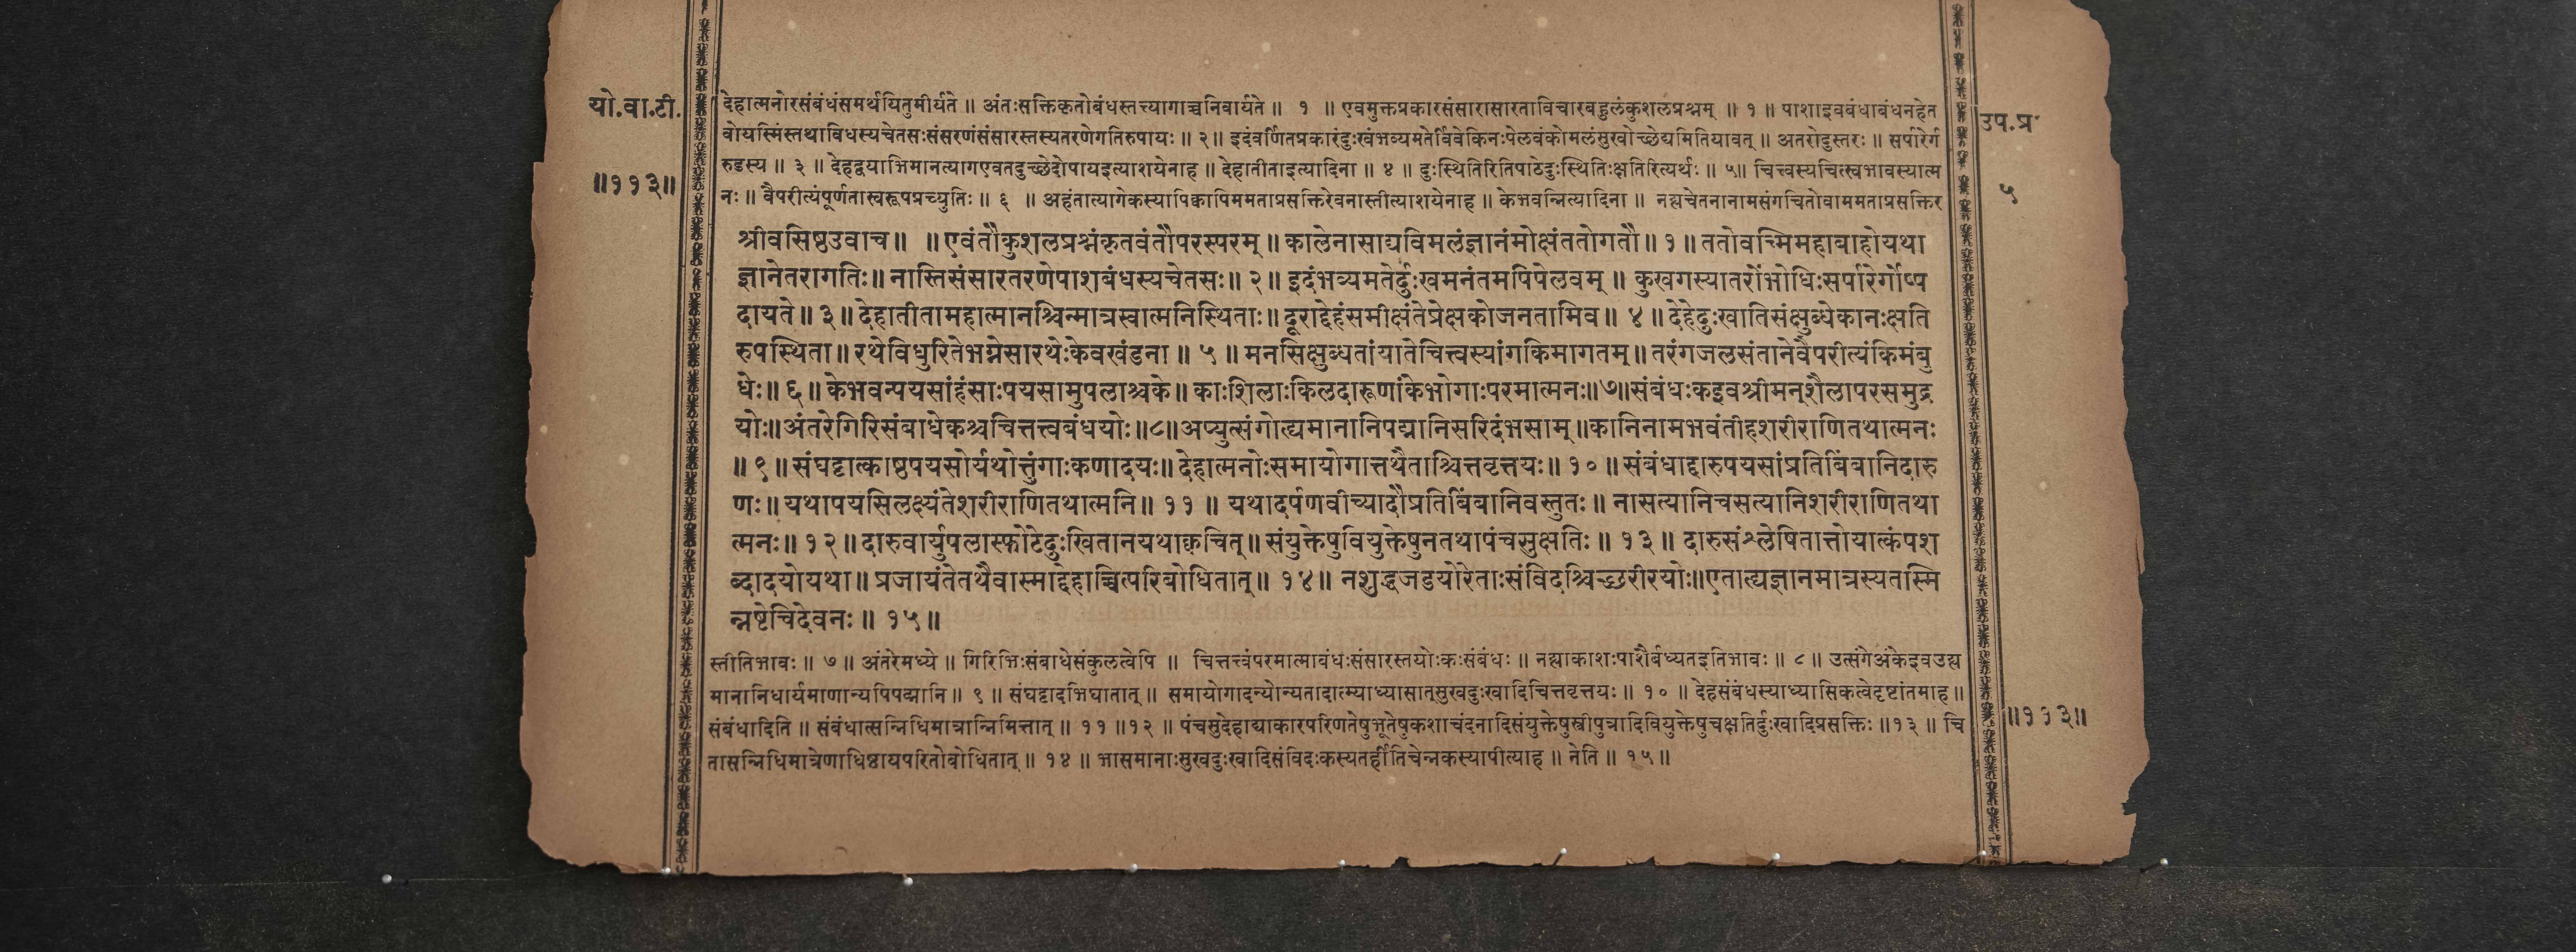 यो.वा.टी.
॥११३॥
देहात्मनोरसंबंधंसमर्थयितुमीर्यते ॥ अंतःसक्तिकृतोबंधस्तत्त्यागाच्चनिवार्यते ॥ १ ॥ एवमुक्तप्रकारसंसारासारताविचारबहुलंकुशलप्रश्नम् ॥ १ ॥ पाशाइवबंधाबंधनहेत
वोयस्मिंस्तथाविधस्यचेतसःसंसरणंसंसारस्तस्यतरणेगतिरुपायः ॥ २॥ इदंवर्णितप्रकारंदुःखंभव्यमतेर्विवेकिनःपेलवंकोमलंसुखोच्छेद्यमितियावत् ॥ अतरोदुस्तरः ॥ सर्पारेर्ग
रुडस्य ॥ ३ ॥ देहद्वयाभिमानत्यागएवतदुच्छेदोपायइत्याशयेनाह ॥ देहातीताइत्यादिना ॥ ४ ॥ दुःस्थितिरितिपाठेदुःस्थितिःक्षतिरित्यर्थः ॥ ५॥ चित्त्वस्यचित्स्वभावस्यात्म
नः ॥ वैपरीत्यंपूर्णतास्वरूपप्रच्युतिः ॥ ६ ॥ अहंतात्यागेकस्यापिक्वापिममताप्रसक्तिरेवनास्तीत्याशयेनाह ॥ केभवन्नित्यादिना ॥ नह्यचेतनानामसंगचितोवाममताप्रसक्तिर
श्रीवसिष्ठउवाच॥ ॥एवंतौकुशलप्रश्नंकृतवंतौपरस्परम्॥कालेनासाद्यविमलंज्ञानंमोक्षंततोगतौ॥१॥ततोवच्मिमहाबाहोयथा
ज्ञानेतरागतिः॥नास्तिसंसारतरणेपाशबंधस्यचेतसः॥२॥इदंभव्यमतेर्दुःखमनंतमपिपेलवम्॥कुखगस्यातरोंभोधिःसर्पारेर्गोष्प
दायते॥३॥देहातीतामहात्मानश्चिन्मात्रस्वात्मनिस्थिताः॥दूराद्देहंसमीक्षंतेप्रेक्षकोजनतामिव॥४॥देहेदुःखातिसंक्षुब्धेकानःक्षति
रुपस्थिता॥रथेविधुरितेभग्नेसारथेःकेवखंडना॥५॥मनसिक्षुब्धतांयातेचित्त्वस्यांगकिमागतम्॥तरंगजलसंतानेवैपरीत्यंकिमंबु
धेः॥६॥केभवन्पयसांहंसाःपयसामुपलाश्चके॥काःशिलाःकिलदारूणांकेभोगाःपरमात्मनः॥७॥संबंधःकइवश्रीमन्शैलापरसमुद्र
योः॥अंतरेगिरिसंबाधेकश्चचित्तत्त्वबंधयोः॥८॥अप्युत्संगोह्यमानानिपद्मानिसरिदंभसाम्॥कानिनामभवंतीहशरीराणितथात्मनः
॥९॥संघट्टात्काष्ठपयसोर्यथोत्तुंगाःकणादयः॥देहात्मनोःसमायोगात्तथैताश्चित्तवृत्तयः॥१०॥संबंधाद्दारुपयसांप्रतिबिंबानिदारु
णः॥यथापयसिलक्ष्यंतेशरीराणितथात्मनि॥११॥यथादर्पणवीच्यादौप्रतिबिंबानिवस्तुतः॥नासत्यानिचसत्यानिशरीराणितथा
त्मनः॥१२॥दारुवार्युपलास्फोटेदुःखितानयथाक्वचित्॥संयुक्तेषुवियुक्तेषुनतथापंचसुक्षतिः॥१३॥दारुसंश्लेषितात्तोयात्कंपश
ब्दादयोयथा॥प्रजायंतेतथैवास्माद्देहाच्चित्परिबोधितात्॥१४॥नशुद्धजडयोरेताःसंविदश्चिच्छरीरयोः॥एताह्यज्ञानमात्रस्यतस्मि
न्नष्टेचिदेवनः॥१५॥
स्तीतिभावः ॥ ७ ॥ अंतरेमध्ये ॥ गिरिभिःसंबाधेसंकुलत्वेपि ॥ चित्तत्त्वंपरमात्माबंधःसंसारस्तयोःकःसंबंधः ॥ नह्याकाशःपाशैर्बध्यतइतिभावः ॥ ८ ॥ उत्संगेअंकेइवउह्य
मानानिधार्यमाणान्यपिपद्मानि ॥ ९ ॥ संघट्टादभिघातात् ॥ समायोगादन्योन्यतादात्म्याध्यासात्सुखदुःखादिचित्तवृत्तयः ॥ १० ॥ देहसंबंधस्याध्यासिकत्वेदृष्टांतमाह॥
संबंधादिति ॥ संबंधात्सन्निधिमात्रान्निमित्तात् ॥ ११ ॥१२ ॥ पंचसुदेहाद्याकारपरिणतेषुभूतेषुकशाचंदनादिसंयुक्तेषुस्त्रीपुत्रादिवियुक्तेषुचक्षतिर्दुःखादिप्रसक्तिः ॥१३ ॥ चि
तासन्निधिमात्रेणाधिष्ठायपरितोबोधितात् ॥ १४ ॥ भासमानाःसुखदुःखादिसंविदःकस्यतर्हीतिचेन्नकस्यापीत्याह ॥ नेति ॥ १५॥
उप.प्र
५
॥११३॥